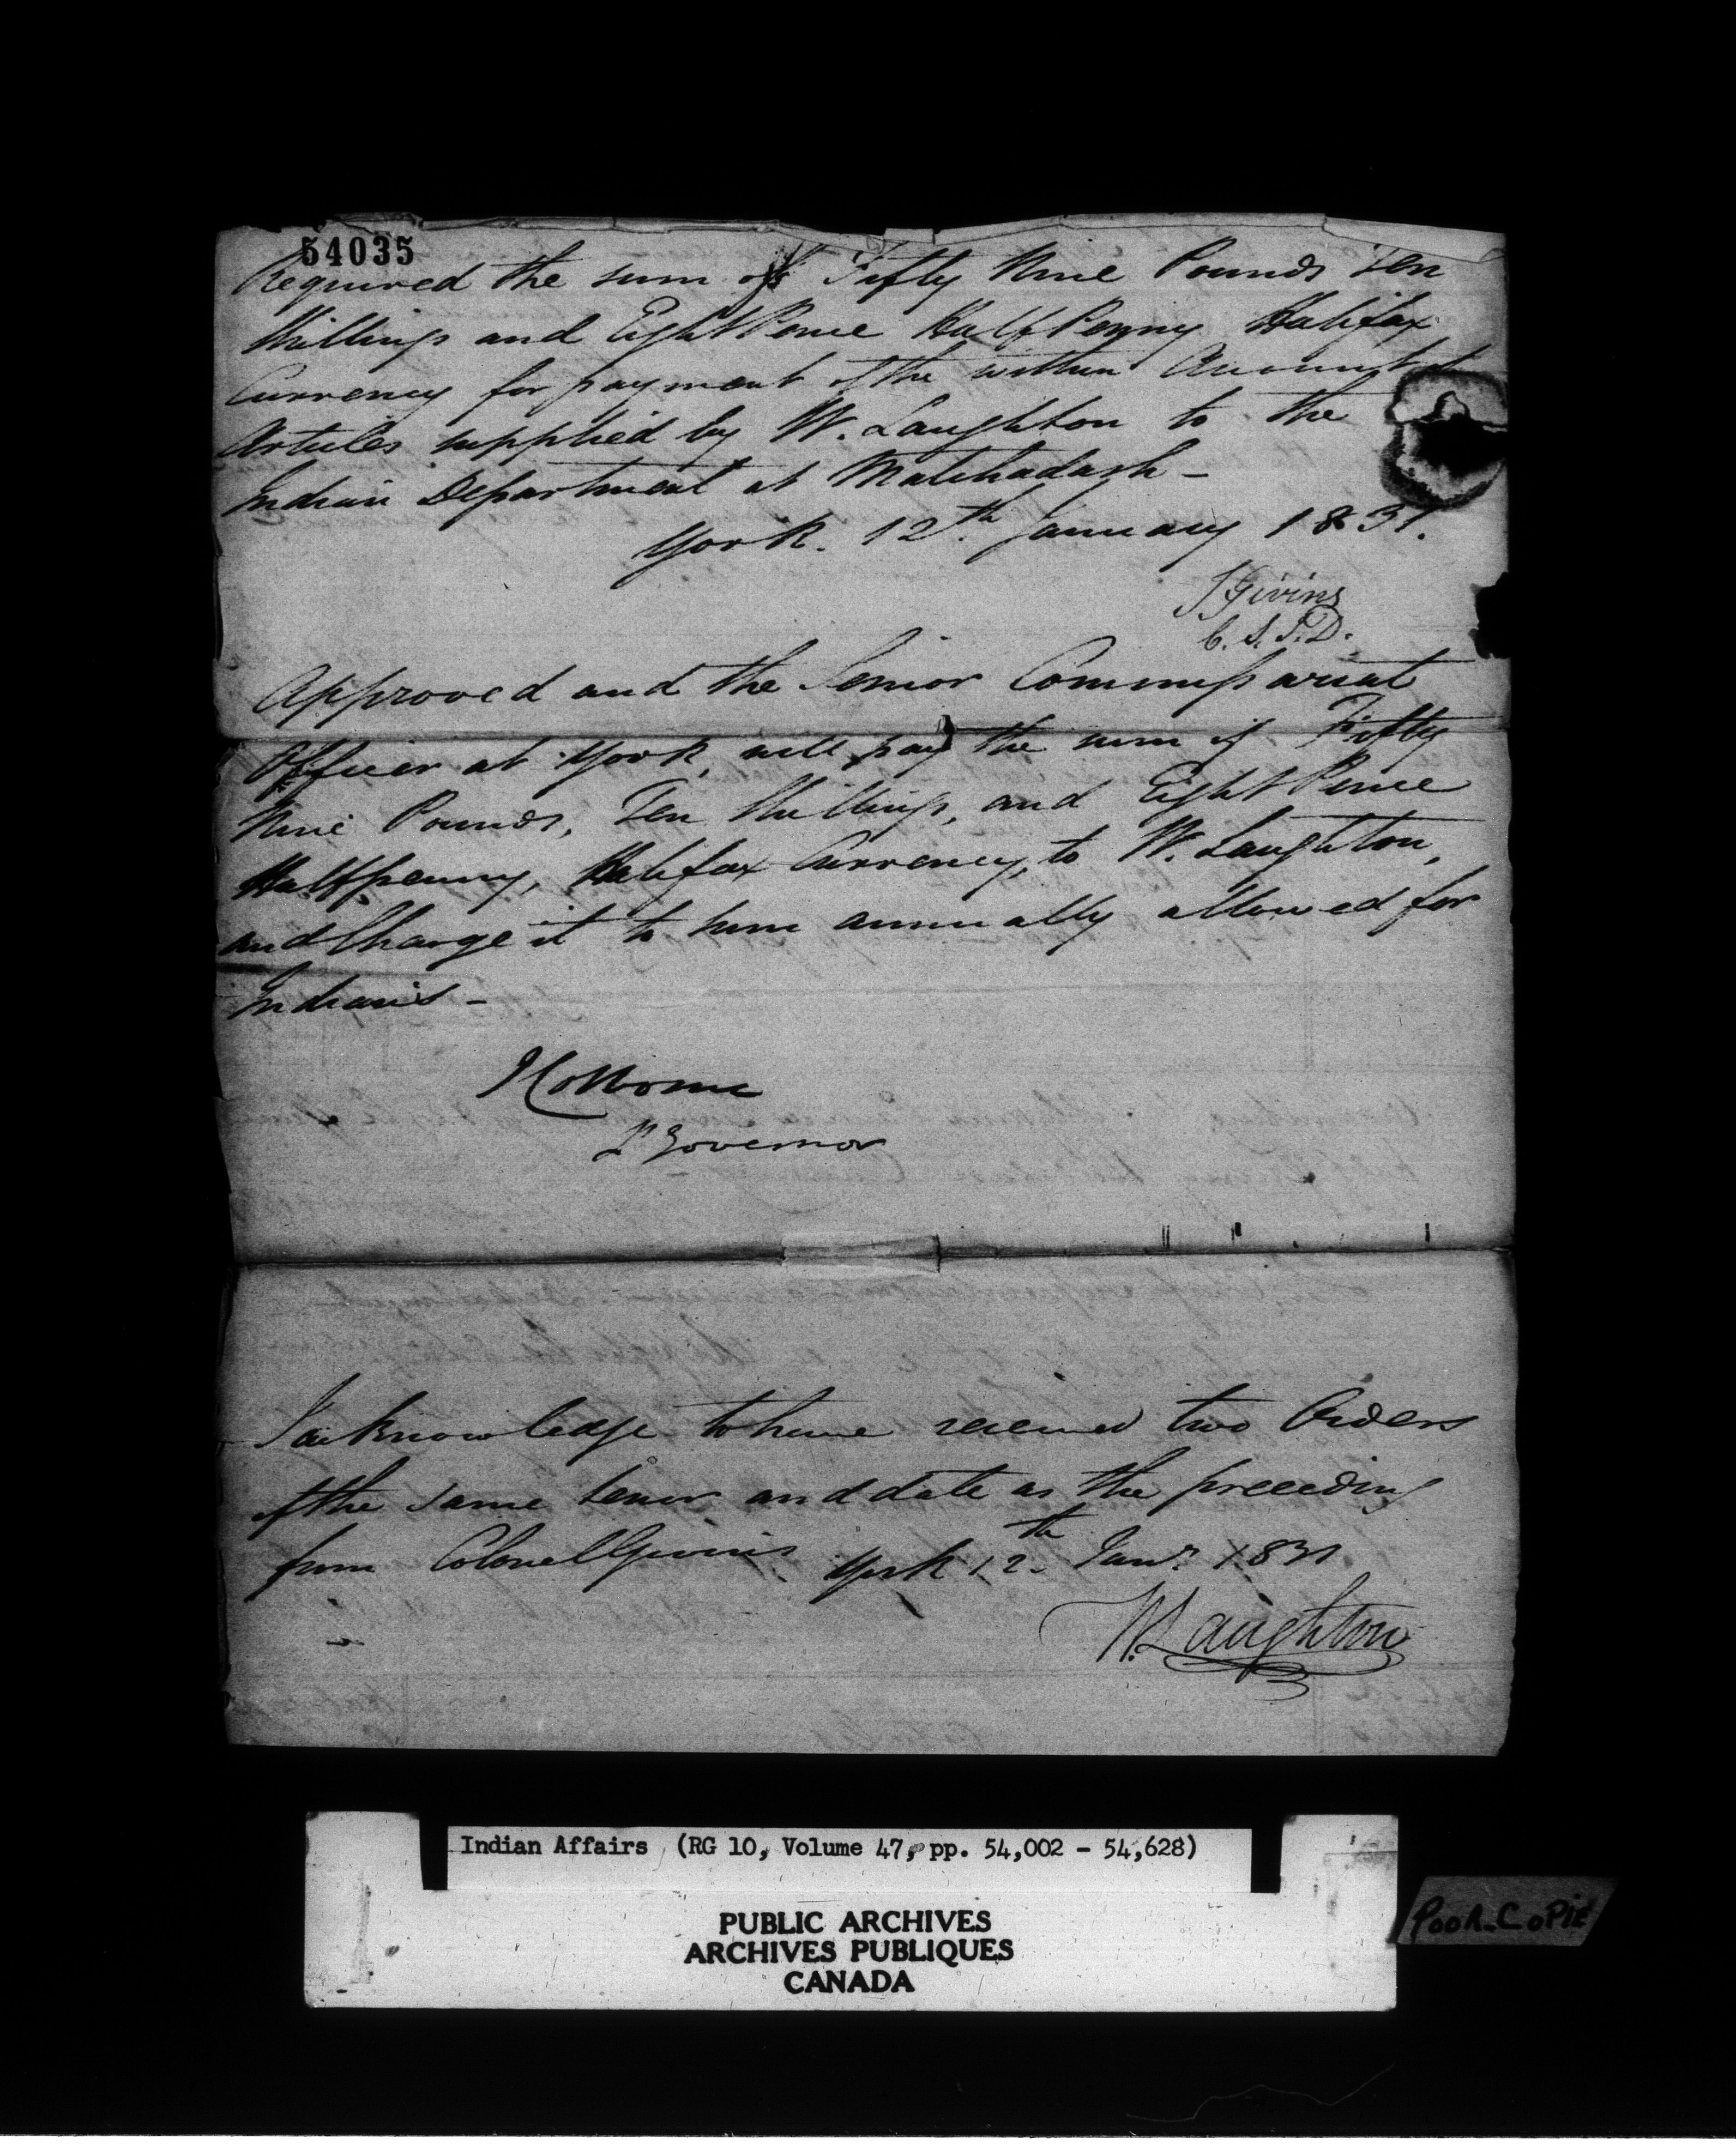 54035
Required the sum of Fifty Nine Pounds Ten
Shillings and Eight Pence Half Penny Halifax
Currency for payment of the within Account of
Articles supplied by W. Laughton to the
Indian Department at Matchadash -
York. 12th January 1831.
J Givins
C. S. I. D.
Approved and the Senior Commissariat
Officer at York, will pay the sum of Fifty
Nine Pounds, Ten Shillings, and Eight Pence
Halfpenny, Halifax Currency, to W. Laughton,
and Charge it to sum annually allowed for
Indians -
J Colborne
Lt Governor
I acknowledge to have received two Orders
of the same tenor and date as the preceeding
from Colonel Givins York 12th Jany 1831
W. Laughton
Indian Affairs (RG 10, Volume 47, pp. 54,002 - 54,628)
PUBLIC ARCHIVES
ARCHIVES PUBLIQUES
CANADA
POOR COPIE